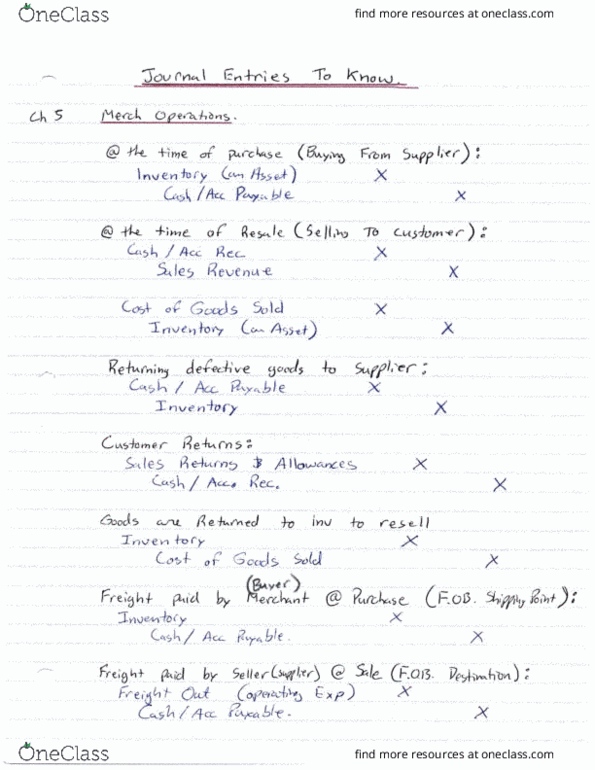 OneClass
find more resources at oneclass.com
Journal Entries To Know.
Ch 5 Merch Operations.
@ the time of purchase (Buying From Supplier):
Inventory (an Asset) X
Cash / Acc Payable X
@ the time of Resale (Selling To Customer):
Cash / Acc Rec X
Sales Revenue X
Cost of Goods Sold X
Inventory (an Asset) X
Returning defective goods to Supplier:
Cash / Acc Payable X
Inventory X
Customer Returns:
Sales Returns & Allowances X
Cash / Acc. Rec. X
Goods are Returned to inv to resell
Inventory X
Cost of Goods Sold X
(Buyer)
Freight paid by Merchant @ Purchase (F.OB. Shipping Point):
Inventory X
Cash / Acc Payable. X
Freight paid by Seller (supplier) @ Sale (F.OB. Destination):
Freight Out (operating Exp) X
Cash / Acc Payable. X
OneClass
find more resources at oneclass.com